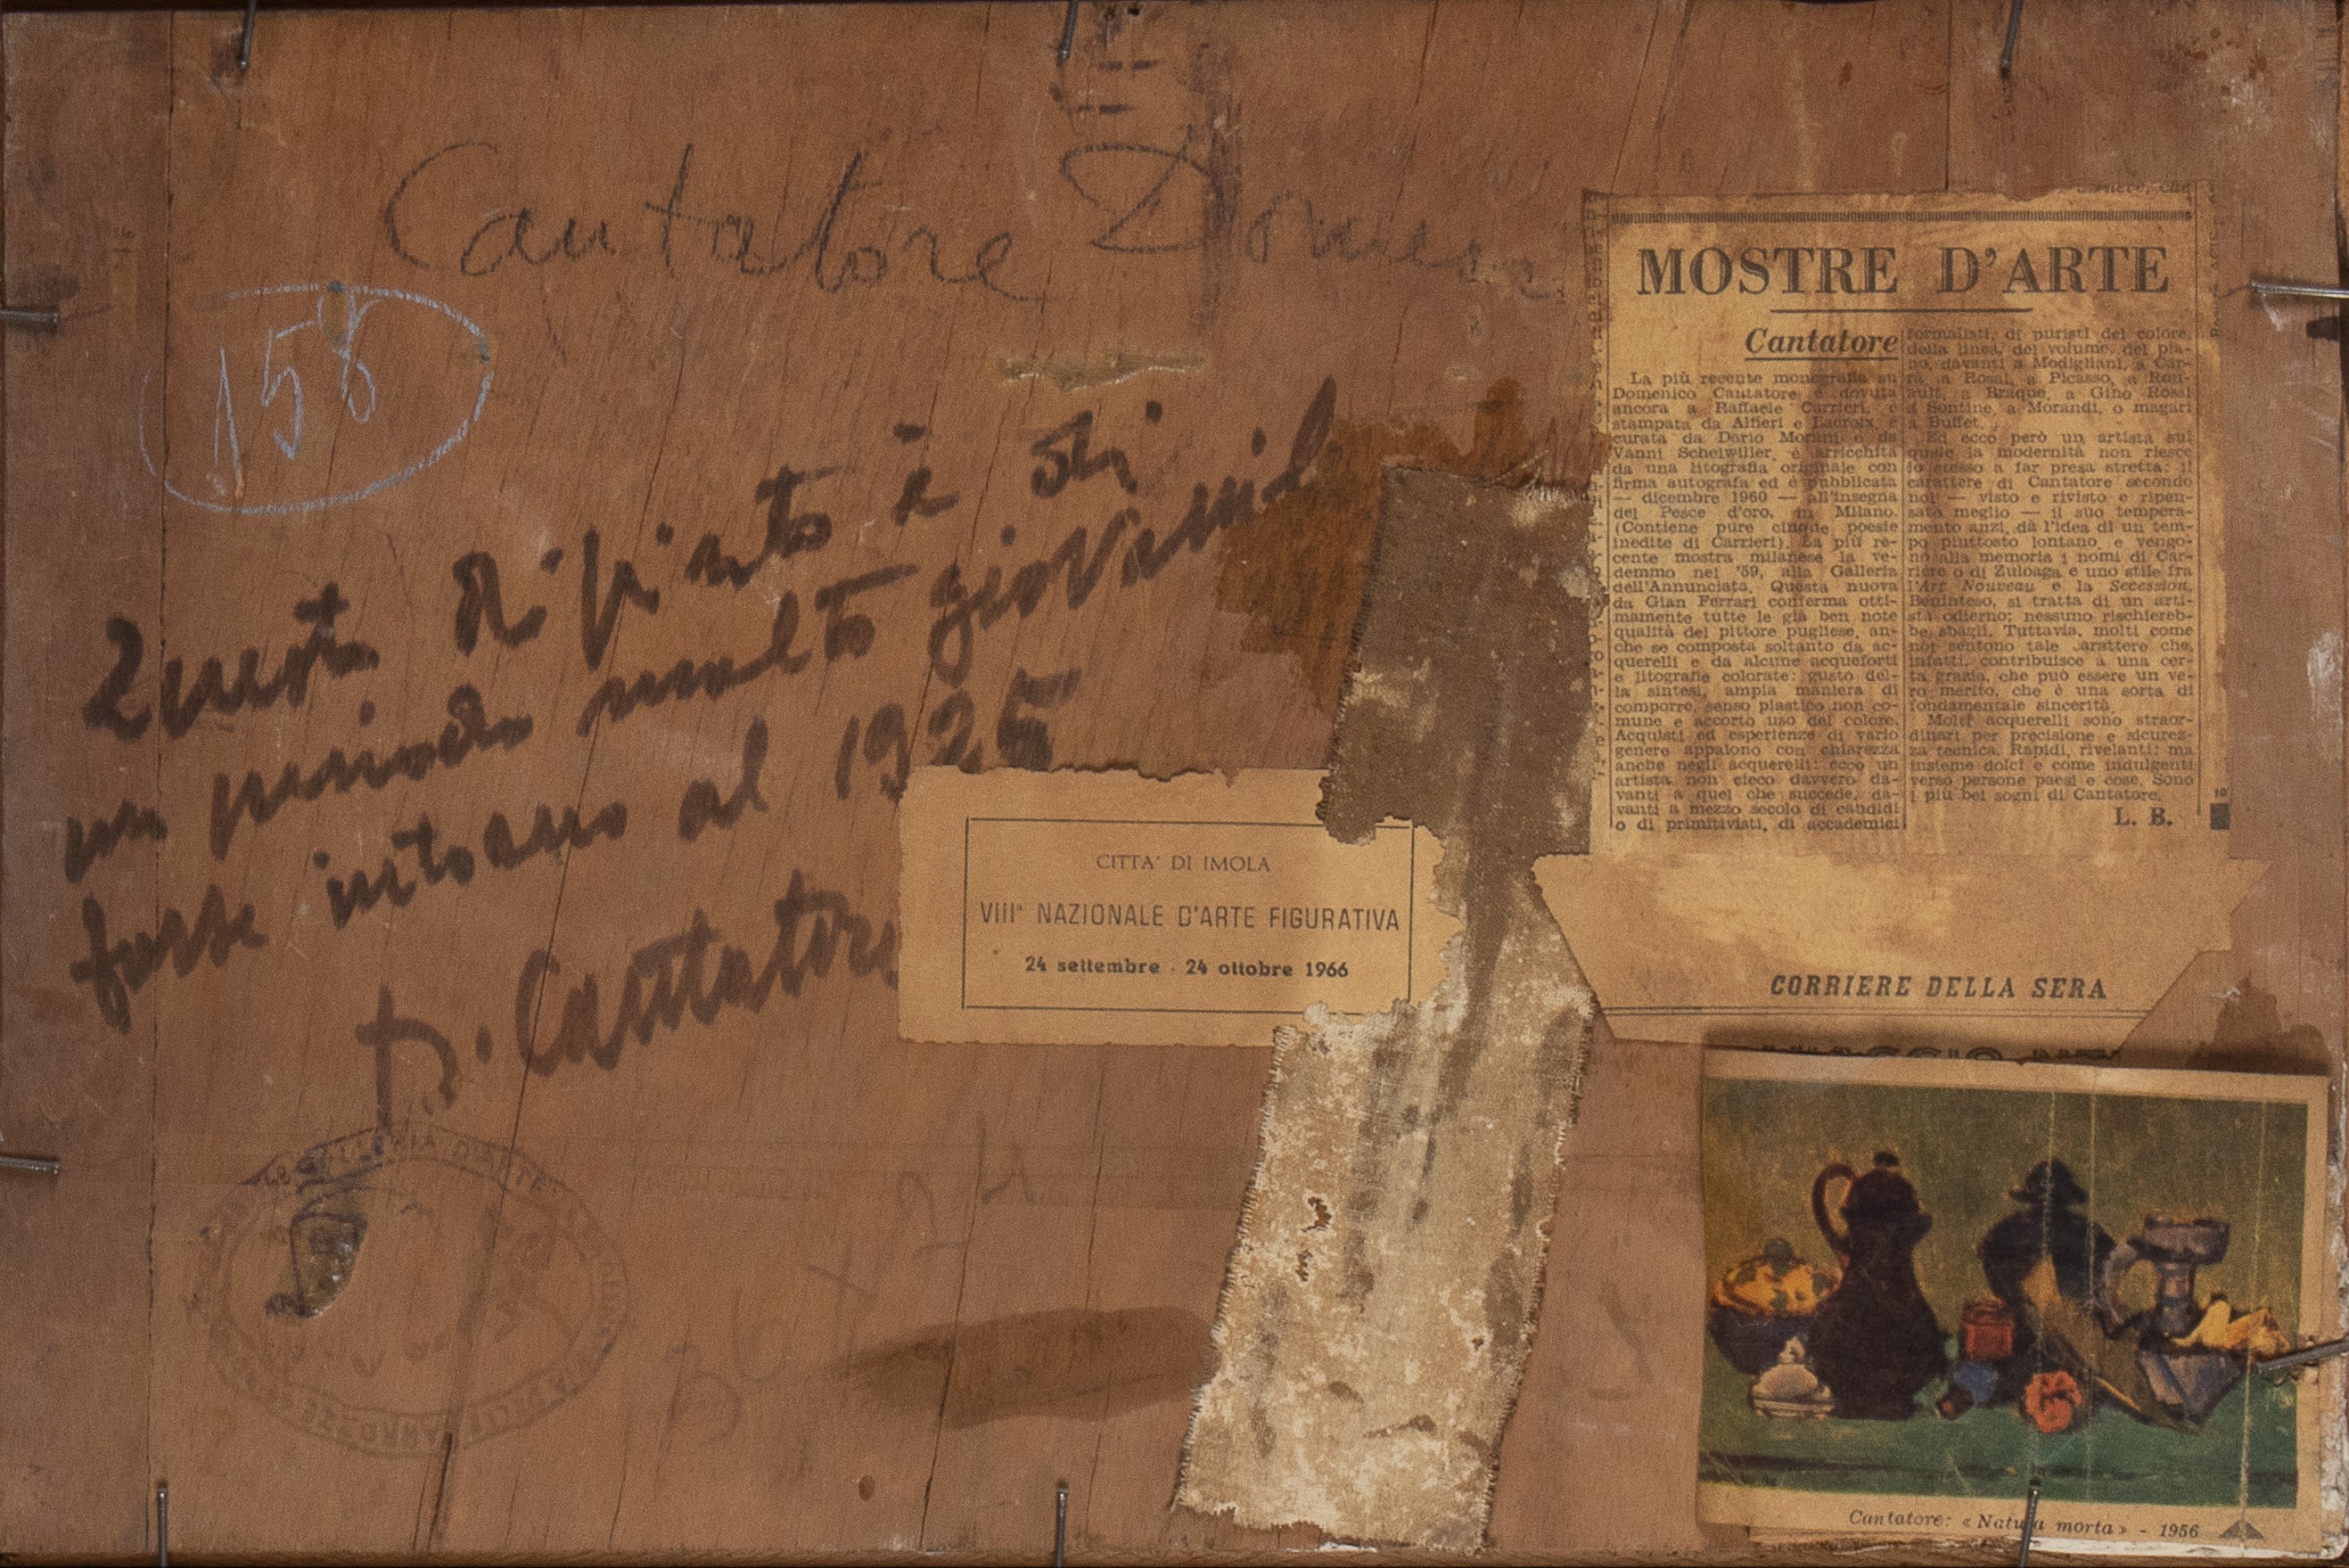 Cantatore Domen
158
Questo dipinto è di
un periodo molto giovanile
forse intorno al 1925
D. Cantatore
CITTA' DI IMOLA
VIIIª NAZIONALE D'ARTE FIGURATIVA
24 settembre - 24 ottobre 1966
MOSTRE D'ARTE
Cantatore
La più recente monografia su
Domenico Cantatore è dovuta
ancora a Raffaele Carrieri, è
stampata da Alfieri e Lacroix, è
curata da Dario Morani e da
Vanni Scheiwiller, è arricchita
da una litografia originale con
firma autografa ed è pubblicata
— dicembre 1960 — all'insegna
del Pesce d'oro, in Milano.
(Contiene pure cinque poesie
inedite di Carrieri). La più re-
cente mostra milanese la ve-
demmo nel '59, alla Galleria
dell'Annunciata. Questa nuova
da Gian Ferrari conferma otti-
mamente tutte le già ben note
qualità del pittore pugliese, an-
che se composta soltanto da ac-
querelli e da alcune acqueforti
e litografie colorate: gusto del-
la sintesi, ampia maniera di
comporre, senso plastico non co-
mune e accorto uso del colore.
Acquisti ed esperienze di vario
genere appaiono con chiarezza
anche negli acquerelli: ecco un
artista non cieco davvero da-
vanti a quel che succede, da-
vanti a mezzo secolo di candidi
o di primitivisti, di accademici
formalisti, di puristi del colore,
della linea, del volume, del pia-
no, davanti a Modigliani, a Car-
rà, a Rosai, a Picasso, a Rou-
ault, a Braque, a Gino Rossi
a Soutine, a Morandi, o magari
a Buffet...
Ed ecco però un artista sul
quale la modernità non riesce
lo stesso a far presa stretta: il
carattere di Cantatore secondo
noi — visto e rivisto e ripen-
sato meglio — il suo tempera-
mento anzi, dà l'idea di un tem-
po piuttosto lontano, e vengo-
no alla memoria i nomi di Car-
rière o di Zuloaga e uno stile fra
l'Art Nouveau e la Secession.
Beninteso, si tratta di un arti-
sta odierno: nessuno rischiereb-
be sbagli. Tuttavia, molti come
noi sentono tale carattere che,
infatti, contribuisce a una cer-
ta grazia, che può essere un ve-
ro merito, che è una sorta di
fondamentale sincerità.
Molti acquerelli sono straor-
dinari per precisione e sicurez-
za tecnica. Rapidi, rivelanti; ma
insieme dolci e come indulgenti
verso persone paesi e cose. Sono
i più bei sogni di Cantatore.
L. B.
CORRIERE DELLA SERA
Cantatore: « Natura morta » - 1956